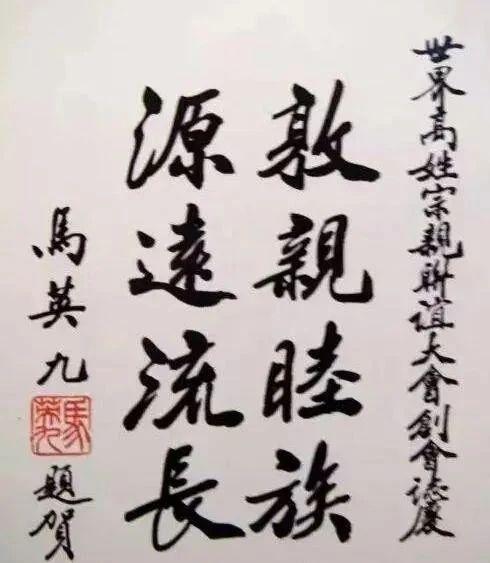 世界高姓宗親聯誼大會創會誌慶
敦親睦族
源遠流長
馬英九
題賀